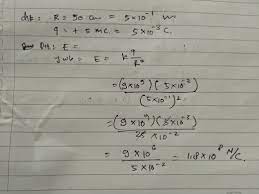 dik : R = 50 cm = 5 x 10⁻¹ m
q = + 5 mC. = 5 x 10⁻³ C.
Dit : E =
Jwb = E = k q / R²
= (9 x 10⁹) (5 x 10⁻³) / (5 x 10⁻¹)²
= (9 x 10⁹) (5 x 10⁻³) / 25 x 10⁻²
= 9 x 10⁶ / 5 x 10⁻² = 1,8 x 10⁸ N/C.